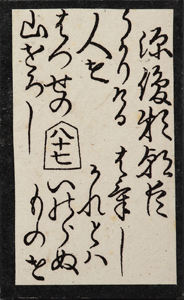 源俊頼朝臣
うかりける
人を
はつせの
山をろし
八十七
はけし
かれとは
いのらぬ
ものを